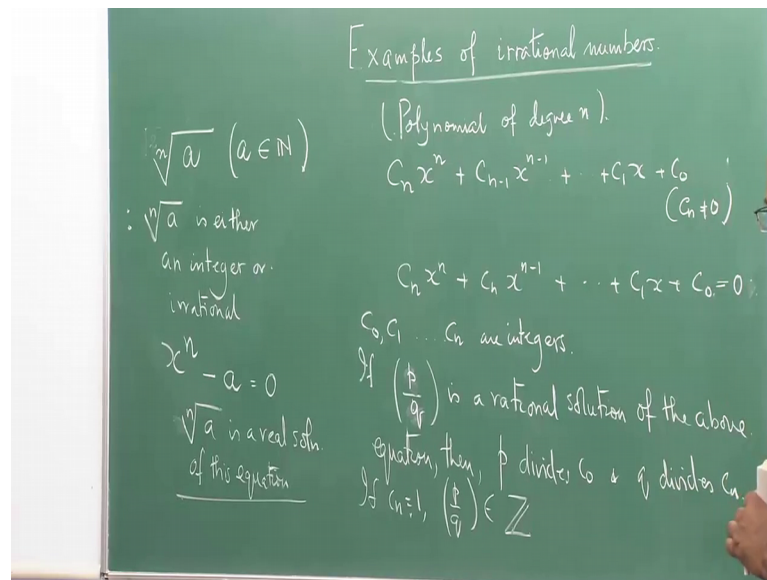 Examples of irrational numbers.
(Polynomial of degree n).
Cₙxⁿ + Cₙ₋₁xⁿ⁻¹ + ·· + C₁x + C₀
(Cₙ ≠ 0)
Cₙxⁿ + Cₙxⁿ⁻¹ + ·· + C₁x + C₀ = 0
C₀, C₁ ... Cₙ are integers.
If (p/q) is a rational solution of the above
equation, then, p divides C₀ & q divides Cₙ.
If Cₙ = 1, (p/q) ∈ ℤ
ⁿ√a (a ∈ ℕ)
: ⁿ√a is either
an integer or
irrational
xⁿ - a = 0
ⁿ√a is a real soln.
of this equation